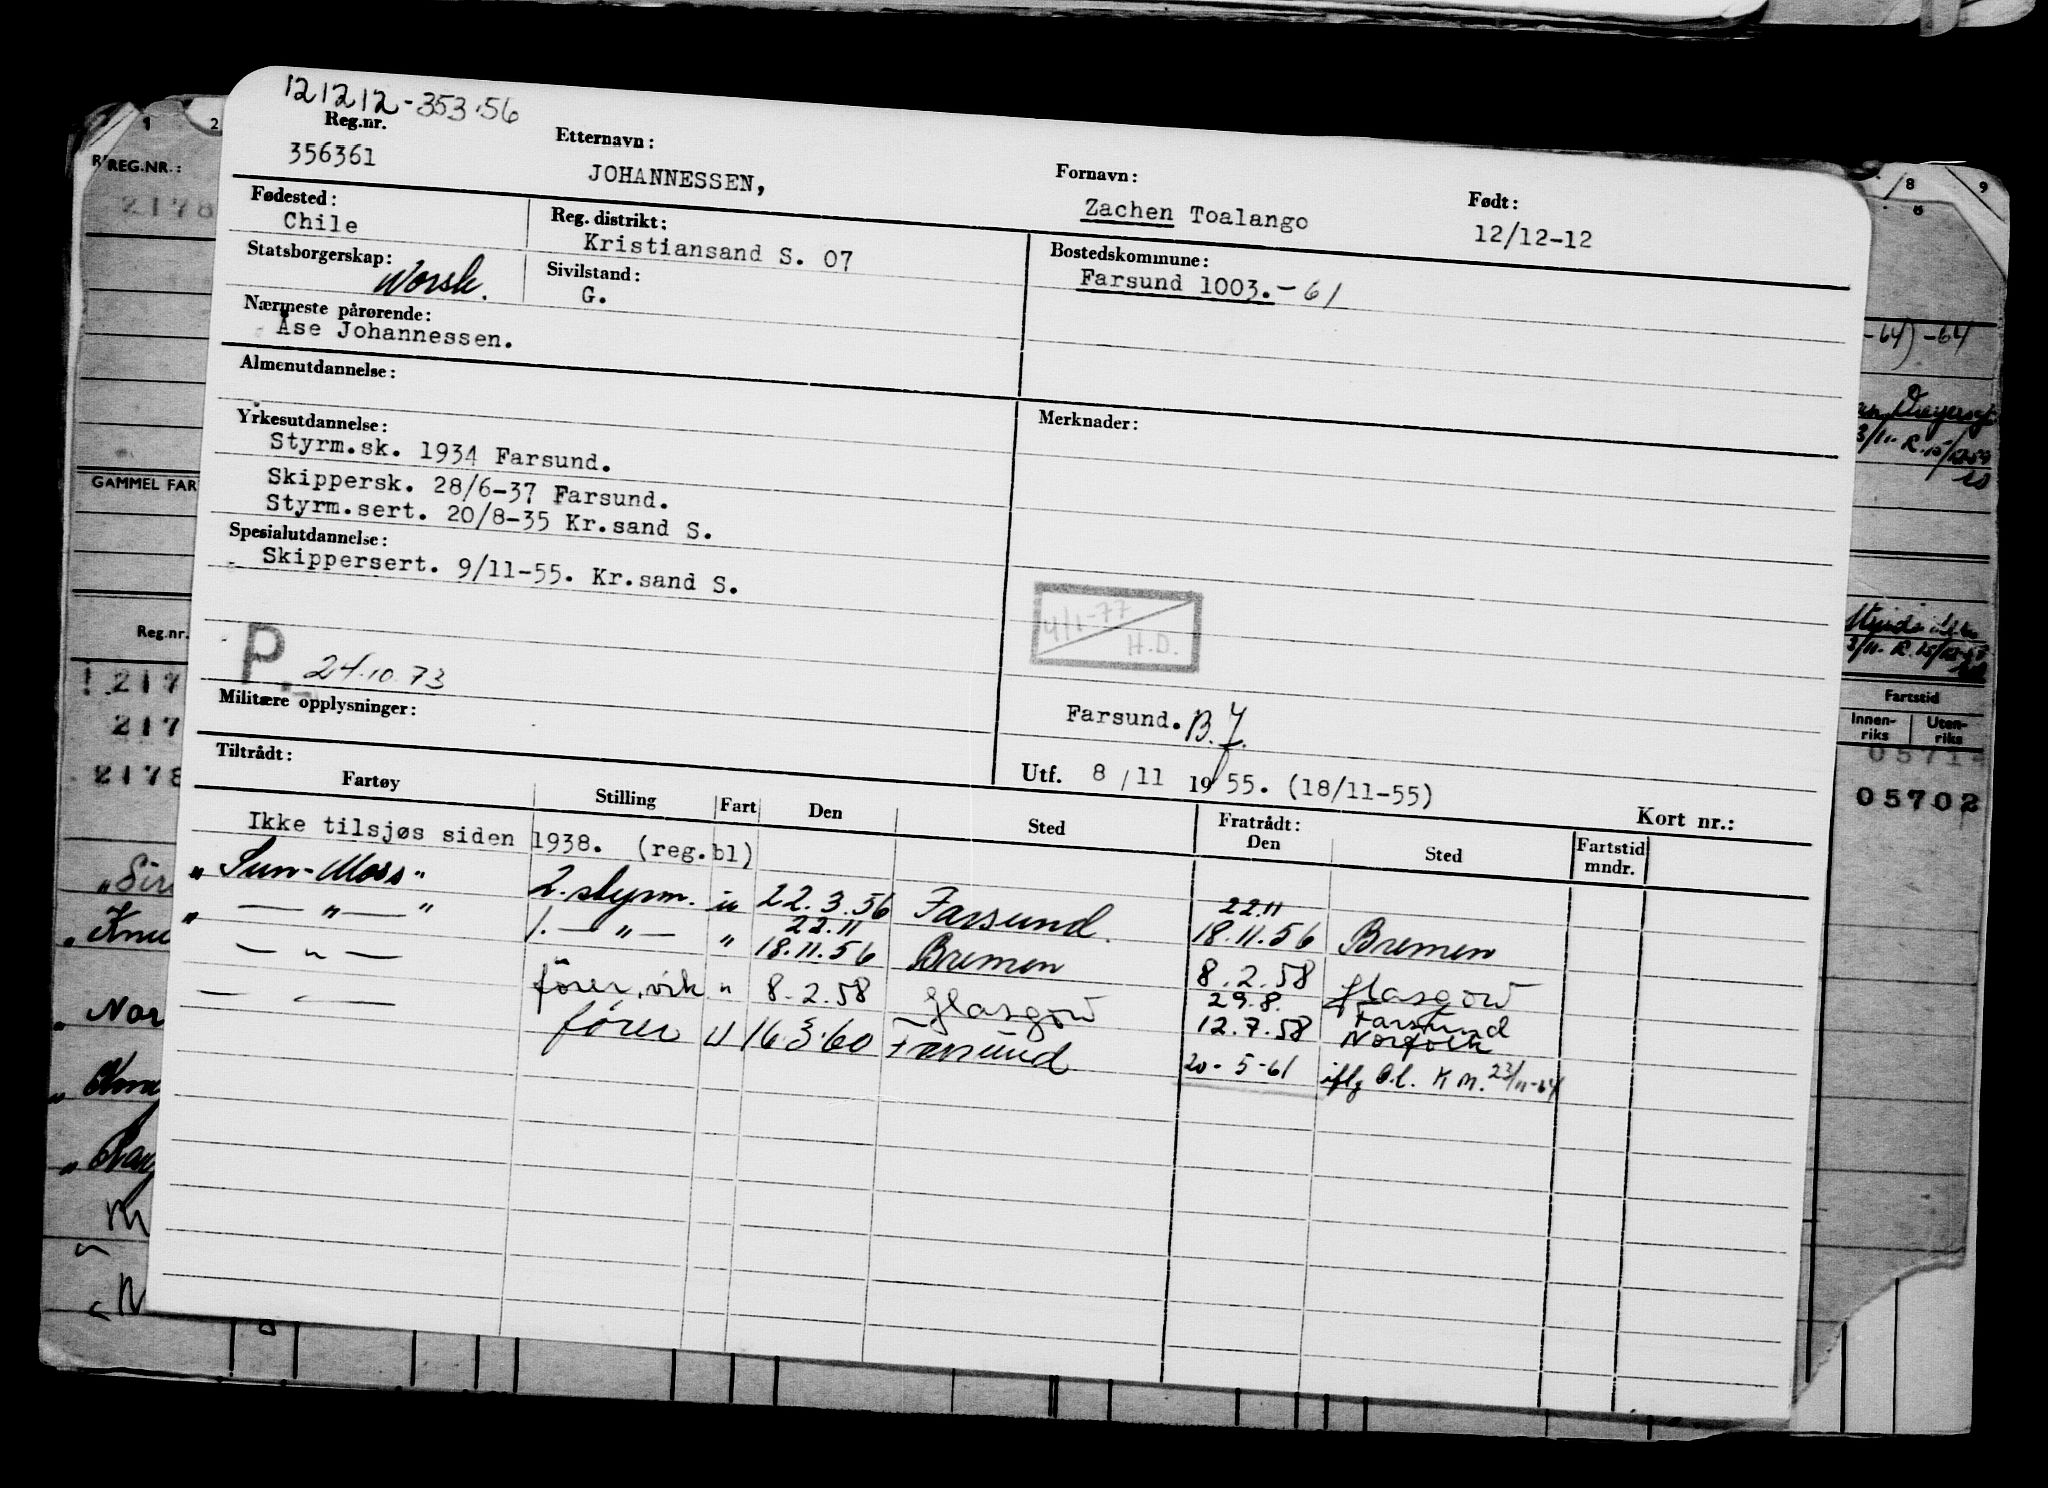 121212-353.56
Reg.nr. Etternavn: Fornavn: Født:
356361 JOHANNESSEN, Zachen Toalango 12/12-12
Fødested: Reg. distrikt: Bostedskommune:
Chile Kristiansand S. 07 Farsund 1003.-61
Statsborgerskap: Sivilstand:
Norsk. G.
Nærmeste pårørende:
Åse Johannessen.
Almenutdannelse: Merknader:
Yrkesutdannelse:
Styrm.sk. 1934 Farsund.
Skippersk. 28/6-37 Farsund.
Styrm.sert. 20/8-35 Kr.sand S.
Spesialutdannelse:
Skippersert. 9/11-55. Kr.sand S.
4/1-77
H.D.
P. 24.10.73
Militære opplysninger:
Farsund. B.J.
Utf. 8/11 1955. (18/11-55)
Tiltrådt: Kort nr.:
Fartøy Stilling Fart Den Sted Fratrådt: Den Sted Fartstid mndr.
Ikke tilsjøs siden 1938. (reg.bl)
"Sun-Moss" 2. styrm. u 22.3.56 Farsund. 22.11 18.11.56 Bremen
" — " — " 1. — " — " 22.11 18.11.56 Bremen 8.2.58 Glasgow
— " — fører, vik " 8.2.58 Glasgow 29.8. 12.7.58 Farsund Norfolk
— " — fører U 16.3.60 Farsund 20-5-61 iflg b.l. K M. 23/11-64
1 2 8 9
REG.NR.:
2178
GAMMEL FAR
Reg.nr.
217
217
2178
-64) -64
Fartstid
Innen-riks Uten-riks
0571
05702
"Sir
"Knu
"Nor